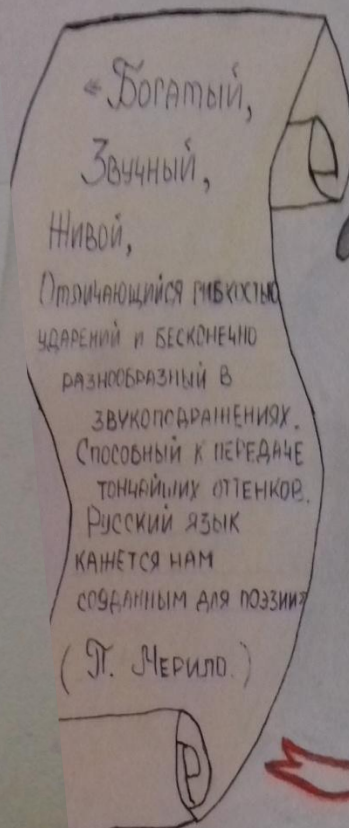 «Богатый,
Звучный,
Живой,
Отличающийся гибкостью
ударений и бесконечно
разнообразный в
звукоподражениях.
Способный к передаче
тончайших оттенков.
Русский язык
кажется нам
созданным для поэзии»
(П. Мерило.)